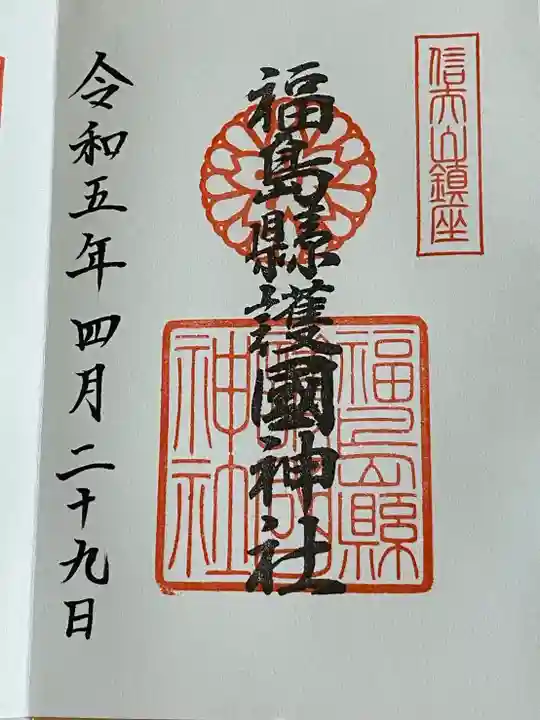 信夫山鎮座
福島縣護國神社
福島縣護國神社
令和五年四月二十九日